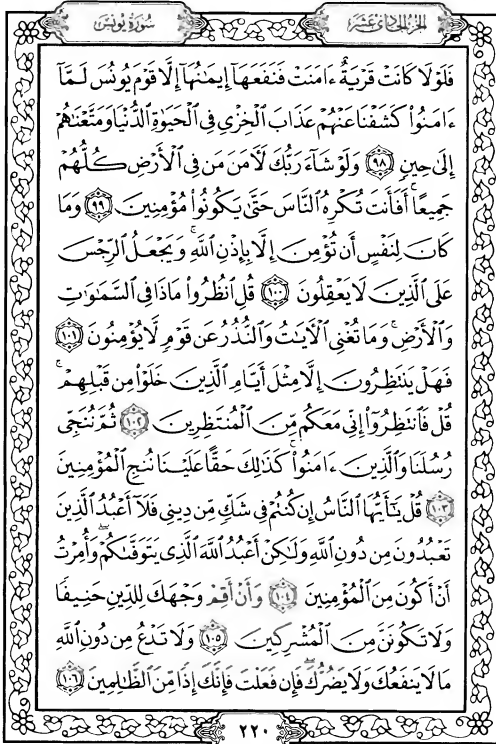 سورة يونس
الجزء الحادى عشر
فَلَوْلَا كَانَتْ قَرْيَةٌ ءَامَنَتْ فَنَفَعَهَآ إِيمَـٰنُهَآ إِلَّا قَوْمَ يُونُسَ لَمَّآ
ءَامَنُوا۟ كَشَفْنَا عَنْهُمْ عَذَابَ ٱلْخِزْىِ فِى ٱلْحَيَوٰةِ ٱلدُّنْيَا وَمَتَّعْنَـٰهُمْ
إِلَىٰ حِينٍ ٩٨ وَلَوْ شَآءَ رَبُّكَ لَـَٔامَنَ مَن فِى ٱلْأَرْضِ كُلُّهُمْ
جَمِيعًا ۚ أَفَأَنتَ تُكْرِهُ ٱلنَّاسَ حَتَّىٰ يَكُونُوا۟ مُؤْمِنِينَ ٩٩ وَمَا
كَانَ لِنَفْسٍ أَن تُؤْمِنَ إِلَّا بِإِذْنِ ٱللَّهِ ۚ وَيَجْعَلُ ٱلرِّجْسَ
عَلَى ٱلَّذِينَ لَا يَعْقِلُونَ ١٠٠ قُلِ ٱنظُرُوا۟ مَاذَا فِى ٱلسَّمَـٰوَٰتِ
وَٱلْأَرْضِ ۚ وَمَا تُغْنِى ٱلْـَٔايَـٰتُ وَٱلنُّذُرُ عَن قَوْمٍ لَّا يُؤْمِنُونَ ١٠١
فَهَلْ يَنتَظِرُونَ إِلَّا مِثْلَ أَيَّامِ ٱلَّذِينَ خَلَوْا۟ مِن قَبْلِهِمْ ۚ
قُلْ فَٱنتَظِرُوٓا۟ إِنِّى مَعَكُم مِّنَ ٱلْمُنتَظِرِينَ ١٠٢ ثُمَّ نُنَجِّى
رُسُلَنَا وَٱلَّذِينَ ءَامَنُوا۟ ۚ كَذَٰلِكَ حَقًّا عَلَيْنَا نُنجِ ٱلْمُؤْمِنِينَ
١٠٣ قُلْ يَـٰٓأَيُّهَا ٱلنَّاسُ إِن كُنتُمْ فِى شَكٍّ مِّن دِينِى فَلَآ أَعْبُدُ ٱلَّذِينَ
تَعْبُدُونَ مِن دُونِ ٱللَّهِ وَلَـٰكِنْ أَعْبُدُ ٱللَّهَ ٱلَّذِى يَتَوَفَّىٰكُمْ ۖ وَأُمِرْتُ
أَنْ أَكُونَ مِنَ ٱلْمُؤْمِنِينَ ١٠٤ وَأَنْ أَقِمْ وَجْهَكَ لِلدِّينِ حَنِيفًا
وَلَا تَكُونَنَّ مِنَ ٱلْمُشْرِكِينَ ١٠٥ وَلَا تَدْعُ مِن دُونِ ٱللَّهِ
مَا لَا يَنفَعُكَ وَلَا يَضُرُّكَ ۖ فَإِن فَعَلْتَ فَإِنَّكَ إِذًا مِّنَ ٱلظَّـٰلِمِينَ ١٠٦
٢٢٠